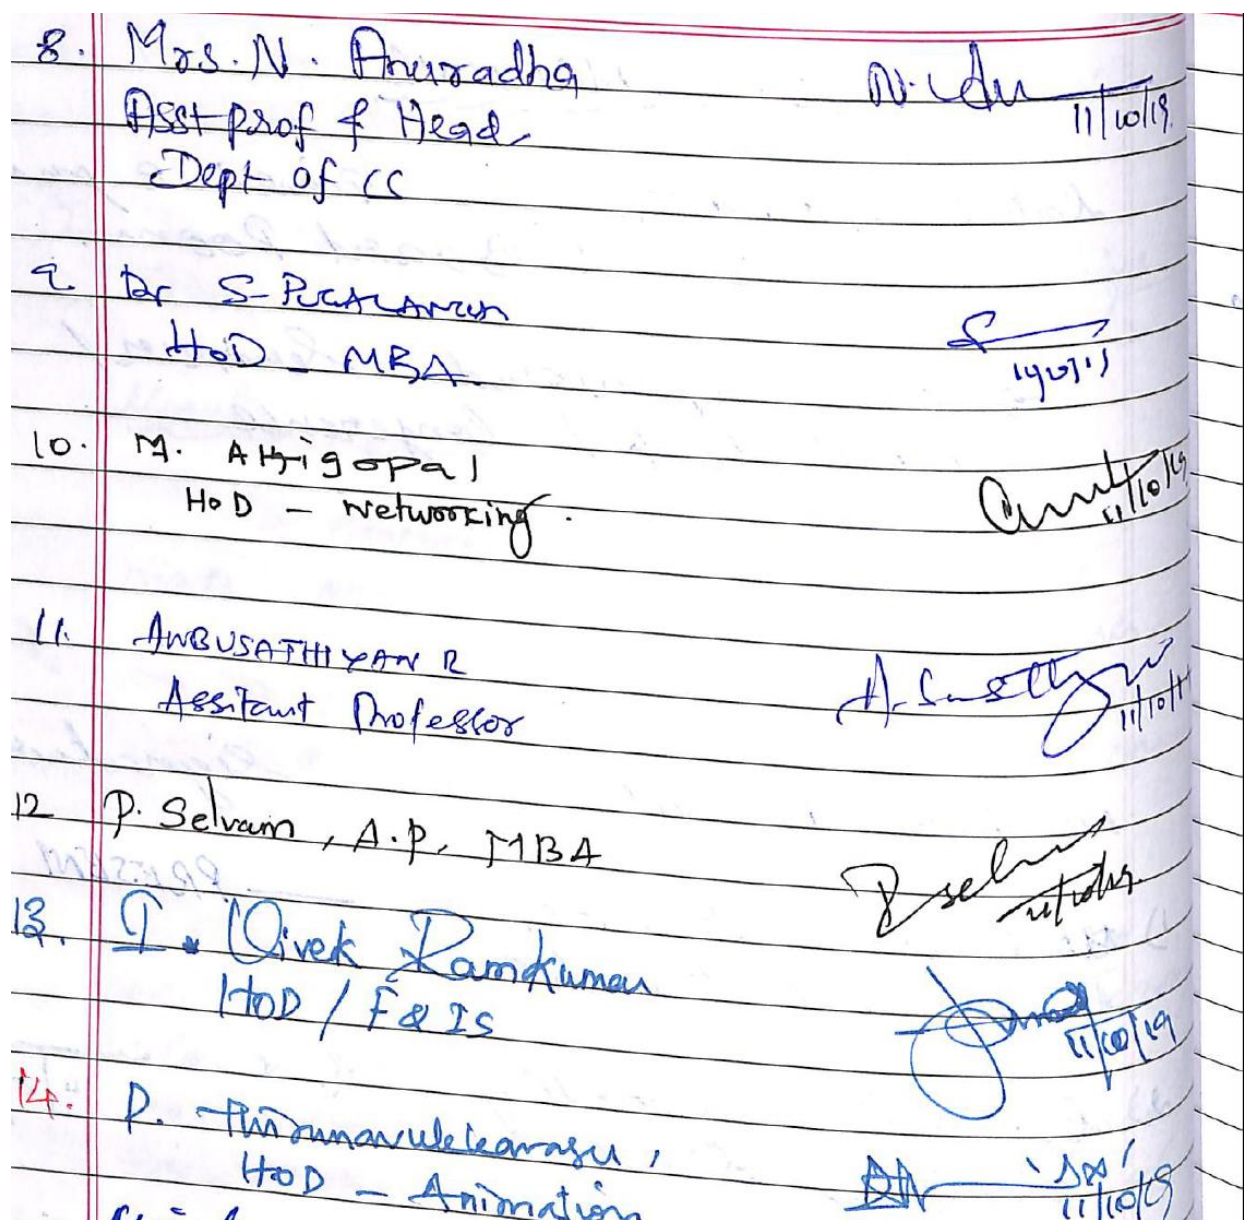 8. Mrs. N. Anuradha N. 11/10/19.
Asst prof & Head
Dept of CS
9. Dr S- PUGALANTHI
HOD - MBA
10. M. Azhigopal
HOD - Networking. 11/10/19
11. ANBUSATHIYAN R
Assitant Professor 11/10/19
12 P. Selvam, A.P, MBA
11/10/19
13. I. Vivek Ramkumar
HOD / F & IS 11/10/19
14. P. Thirunavukkarasu,
HOD - Animation 11/10/19